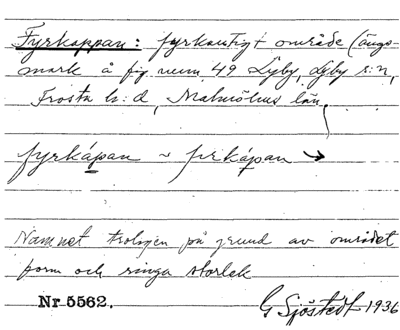 Fyrkappan: fyrkantigt område (ängs-
mark å fig. num. 49 Lyby, Lyby s:n,
Frosta h:d, Malmöhus län,
fyrkápan ~ firkápan →
Namnet troligen på grund av området
form och ringa storlek
Nr. 5562. G Sjöstedt 1936